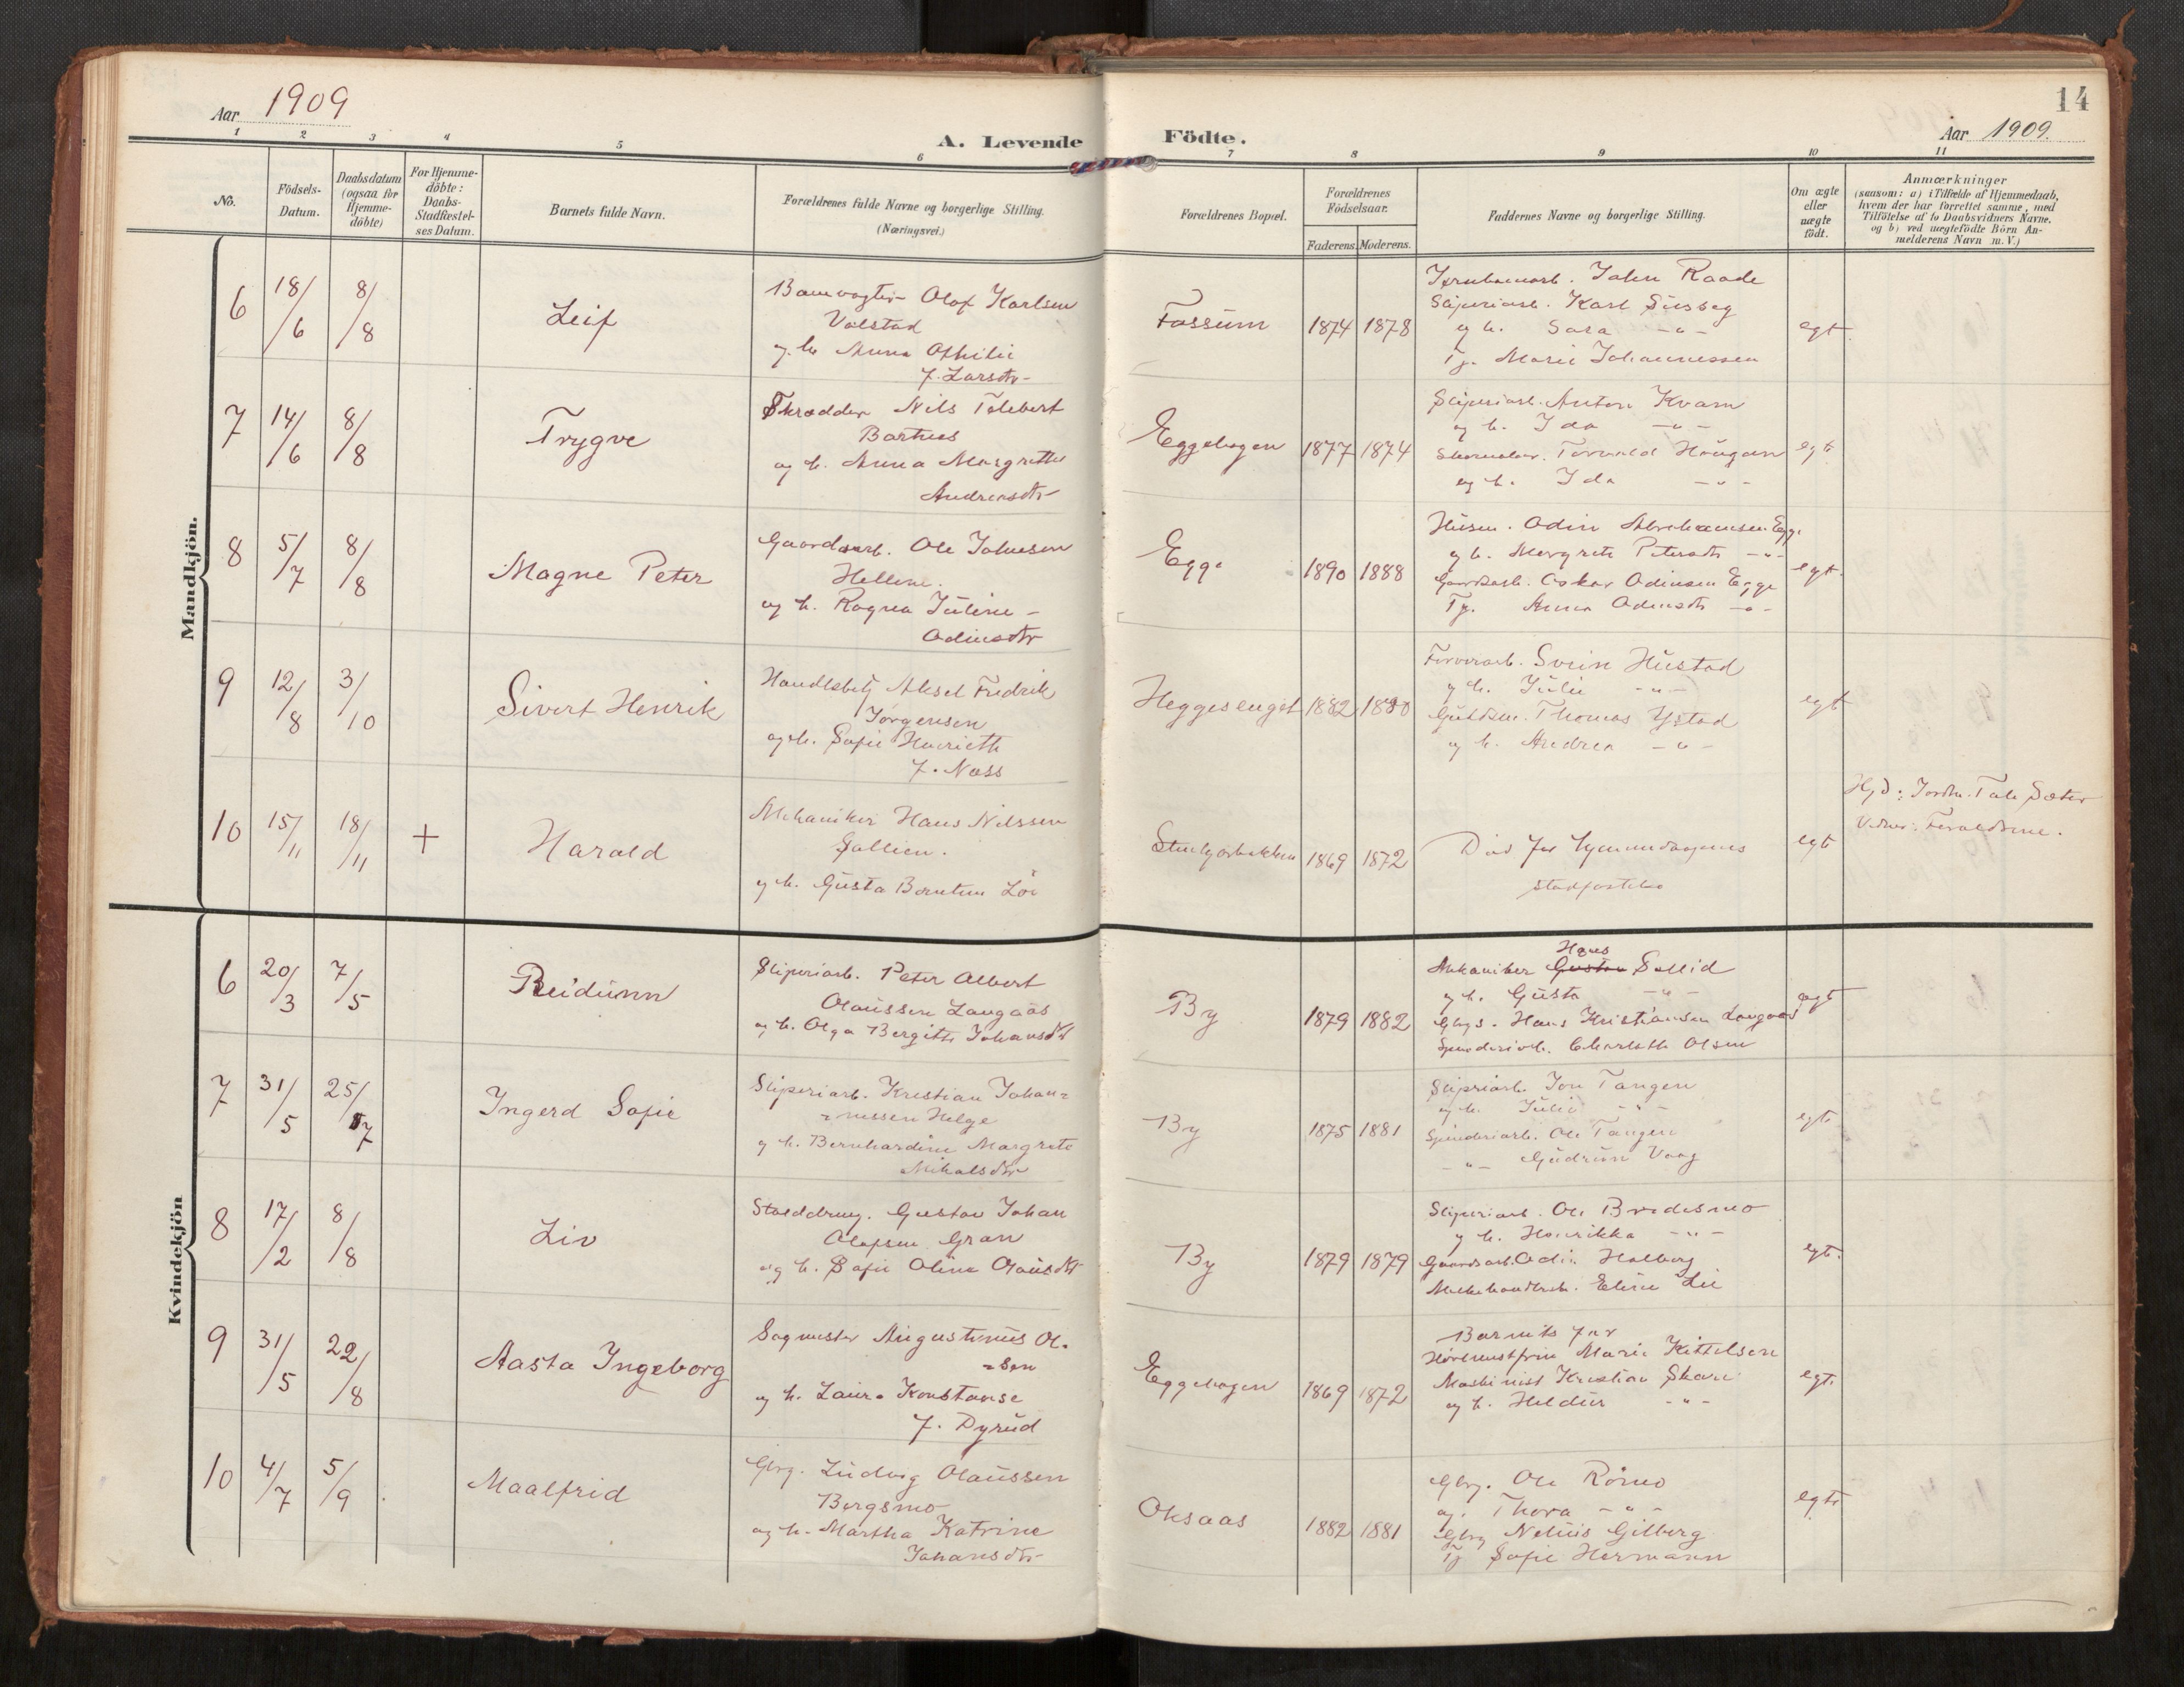 Aar 1909
A. Levende Födte.
Aar 1909.
14
1 2 3 4 5 6 7 8 9 10 11
No.
Födsels-
Datum.
Daabsdatum
(ogsaa for
Hjemme-
döbte)
For Hjemme-
döbte:
Daabs-
Stadfæstel-
ses Datum.
Barnets fulde Navn.
Forældrenes fulde Navne og borgerlige Stilling.
(Næringsvei.)
Forældrenes Bopæl.
Forældrenes
Födselsaar.
Faderens. Moderens.
Faddernes Navne og borgerlige Stilling.
Om ægte
eller
uægte
födt.
Anmærkninger
(saasom: a) i Tilfælde af Hjemmedaab,
hvem der har forrettet samme, med
Tilföielse af to Daabsvidners Navne.
og b) ved uægtefödte Börn An-
melderens Navn m. V.)
Mandkjön.
6 18/6 8/8 Leif
Banevogter Olaf Karlsen
Valstad
og h. Anna Othilie
f. Larsdtr
Fossum 1874 1878
John Raade
Sliperiarb. Karl Susseg
og h. Sara -"-
Tj. Marie Johannessen
egt
7 14/6 8/8 Trygve
Skrædder Nils Tolebert
Bartnes
og h. Anna Margrethe
Andreasdtr
Eggehagen 1877 1874
Sliperiarb. Anton Kvam
og h. Ida -"-
Torvald Haugan
og h. Ida -"-
egt
8 5/7 8/8 Magne Peter
Gaardsarb. Ole Johnsen
Hellem.
og h. Ragna Juline
Odinsdtr
Egge 1890 1888
Husm. Odin Abrahamsen Egge
og h. Margrete Petersdtr -"-
Gaardsarb. Oskar Odinsen Egge
Tj. Anna Odinsdtr -"-
egt.
9 12/8 3/10 Sivert Henrik
Handlsbetj Aksel Fredrik
Jørgensen
og h. Sofie Henriette
f. Næss
Heggesenget 1882 1880
Farverarb. Svein Hustad
og h. Julie -"-
Guldsm. Thomas Ystad
og h. Andrea -"-
egt
10 15/11 18/11 + Harald
Mekaniker Hans Nilssen
Sallien.
og h. Gusta Berntine Løe
1869 1872
Død før Hjemmedaapens
stadfæstelse
egt
Hjd: Jordm. Tale Sæter
Vidner: Forældrene.
Kvindekjön
6 20/3 7/5 Reidunn
Sliperiarb. Peter Albert
Olaussen Langaas
og h. Olga Bergitte Johansdtr
By 1879 1882
Hans
Mekaniker Gustav Sallid
og h. Gusta -"-
Gbgs. Hans Kristiansen Langaas
Spinderiarb. Charlotte Olsen
egt
7 31/5 25/7 Ingerd Sofie
Sliperiarb. Kristian Johan=
=nessen Helge
og h. Bernhardine Margrete
Mikalsdtr
By 1875 1881
Sliperiarb. Jon Tangen
og h. Julie -"-
Spinderiarb. Ole Tangen
-"- Gudrun Vaag
egt.
8 17/2 8/8 Liv
Stalddreng. Gustav Johan
Olafsen Gran
og h. Sofie Oline Olausdtr
By 1879 1879
Sliperiarb. Ole Bredesmo
og h. Henrikka -"-
Gaardsarb. Odin Halberg
Melkehandlersk. Eline Lie
egt.
9 31/5 22/8 Aasta Ingeborg
Sagmester Augustinus Ol.
=sen
og h. Laura Konstanse
f. Dyrud
Eggehagen 1869 1872
Barnets far
Marie Kittelsen
Maskinist Kristian Skare
og h. Heldur -"-
egt.
10 4/7 5/9 Maalfrid
Gbrg. Ludvig Olaussen
Bergsmo
og h. Martha Katrine
Johansdtr
Oksaas 1882 1881
Gbrg. Ole Rømo
og. Thora -"-
Gbrg Nelius Gilberg
Tj Sofie Hermann
egte